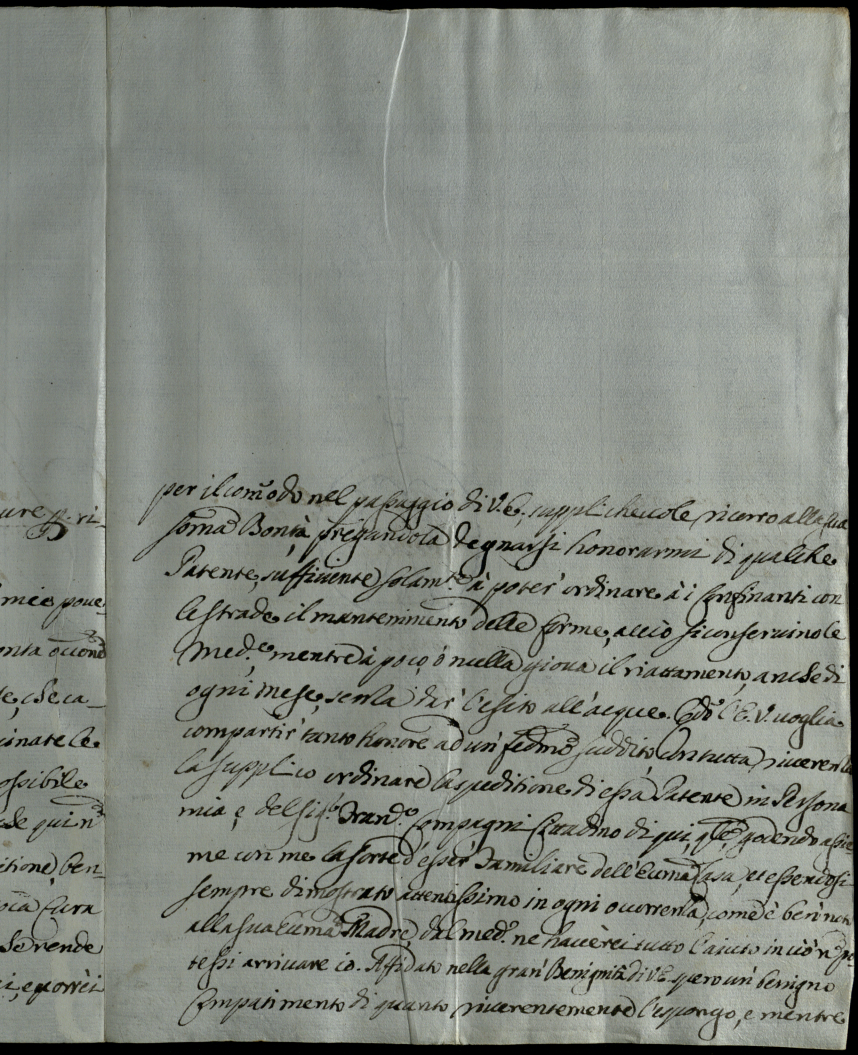 ure p. ri-
mie pove
onta occone
te, che ca-
inate le
ossibile
de qui n
itione, ben-
oca Cura
se rende
i, e porrei
per il comodo nel passaggio di V.E., supplichevole ricorro alla sua
soma Bontà pregandola degnarsi honorarmi di qualche
Patente, sufficiente solamte à poter ordinare à i Confinanti con
le strade il mantenimento delle forme, acciò si conservino le
med.e, mentre à poco, ò nulla giova il riattamento, anche di
ogni mese, senza dar l'esito all'acque. E do l'E.V. voglia
compartir tanto honore ad un fedmo suddito, con tutta riverenza
la supplico ordinare la speditione di essa Patente in Persona
mia, e del sig.r Fran.co Compagni Cittadino di qui, qle godendo assie-
me con me la sorte d'esser Familiare dell'Ecma Casa, et essendosi
sempre dimostrato attentissimo in ogni occorrenza, come è ben noto
alla sua Ecma Madre, dal med.o ne haverei tutto l'aiuto in ciò n po-
tessi arrivare io. Affidato nella gran Benignità di V.E. spero un benigno
Compatimento di quanto riverentemente l'espongo, e mentre